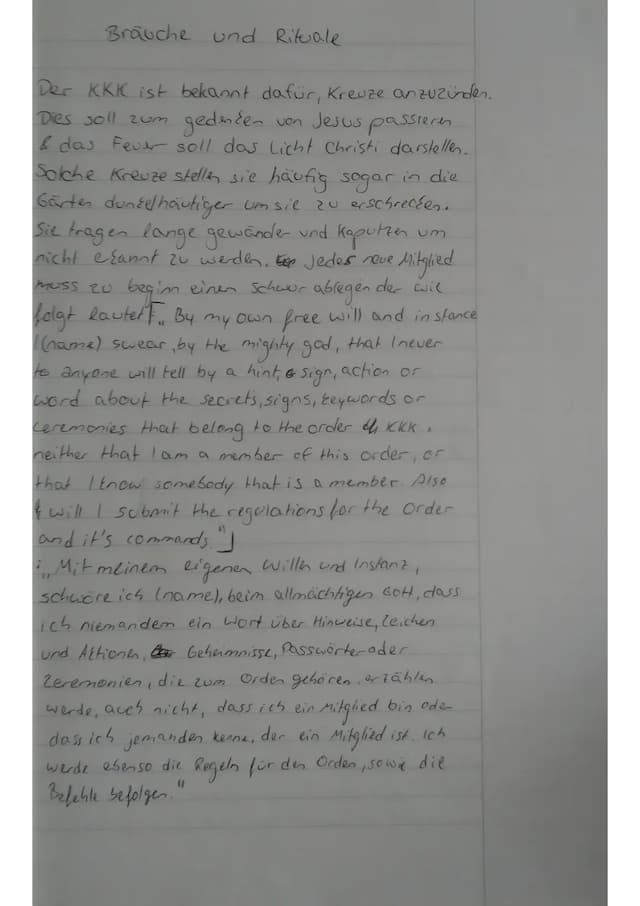 Bräuche und Rituale
Der KKK ist bekannt dafür, Kreuze anzuzünden.
Dies soll zum gedenken von Jesus passieren
& das Feuer soll das Licht Christi darstellen.
Solche Kreuze stellen sie häufig sogar in die
Gärten dunkelhäutiger um sie zu erschrecken.
Sie tragen lange gewänder und Kaputzen um
nicht erkannt zu werden. Jedes neue Mitglied
muss zu beginn einen Schwur ablegen der wie
folgt lautet: „By my own free will and instance
I (name) swear, by the mighty god, that I never
to anyone will tell by a hint, sign, action or
word about the secrets, signs, keywords or
ceremonies that belong to the order KKK.
neither that I am a member of this order, or
that I know somebody that is a member. Also
will I submit the regulations for the order
and it's commands."
: „Mit meinem eigenen Willen und Instanz,
schwöre ich (name), beim allmächtigen Gott, dass
ich niemandem ein Wort über Hinweise, Zeichen
und Aktionen, Geheimnisse, Passwörter oder
Zeremonien, die zum Orden gehören, erzählen
werde, auch nicht, dass ich ein Mitglied bin oder
dass ich jemanden kenne, der ein Mitglied ist. Ich
werde ebenso die Regeln für den Orden, sowie die
Befehle befolgen."